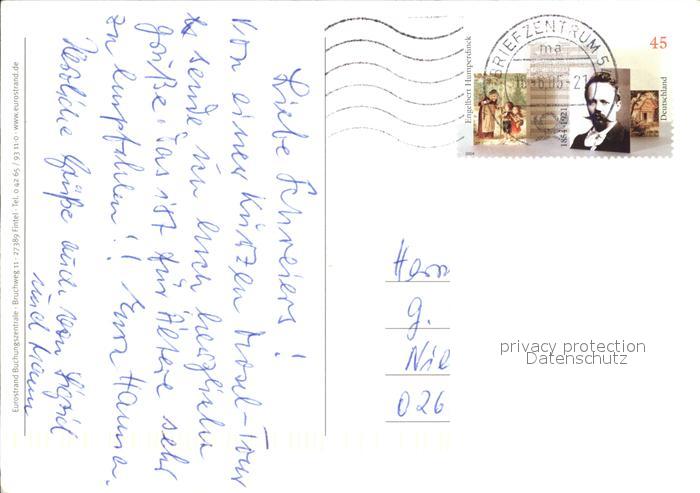 Liebe Schreiers!
Von einer kurzen Mosel-Tour
sende ich Euch herzliche
Grüße. Das ist für Ältere sehr
zu empfehlen!! Eure Hanna.
Herzliche Grüße auch von Sigrid
und Mann
Eurostrand Buchungszentrale · Bruchweg 11 · 27389 Fintel · Tel. 0 42 65 / 93 11-0 · www.eurostrand.de
BRIEFZENTRUM 5
ma
05-21
Engelbert Humperdinck
1854-1921
45
Deutschland
2004
Herrn
G.
Nie
026
privacy protection
Datenschutz